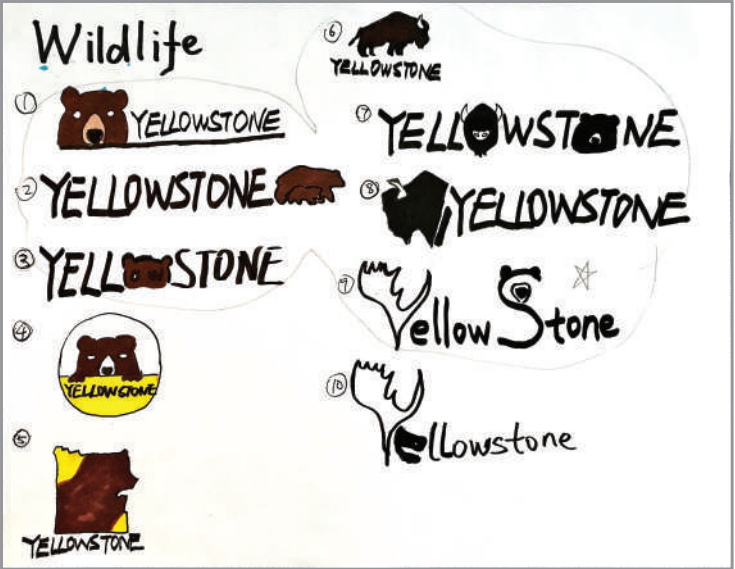 Wildlife
① YELLOWSTONE
② YELLOWSTONE
③ YELLOWSTONE
④ YELLOWSTONE
⑤ YELLOWSTONE
⑥ YELLOWSTONE
⑦ YELLOWSTONE
⑧ YELLOWSTONE
⑨ Yellow Stone
⑩ Yellowstone